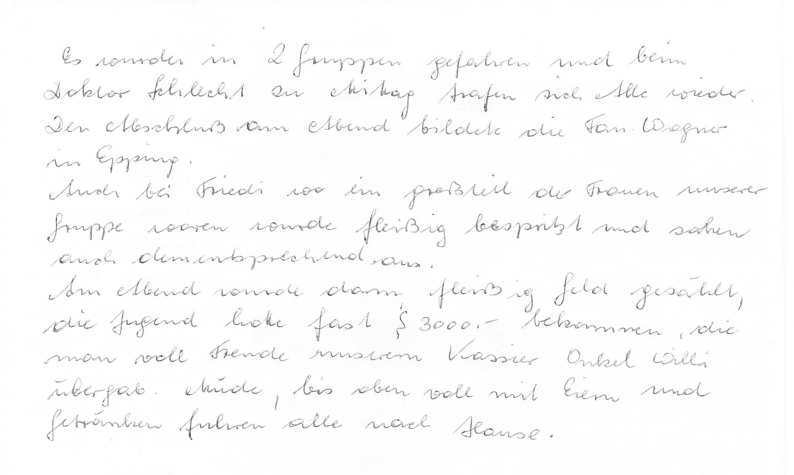 Es wurden in 2 Gruppen gefahren und beim
Doktor Schlecht zu Mittag trafen sich Alle wieder.
Den Abschluß am Abend bildete die Fam. Wagner
in Epping.
Auch bei Friedi wo ein großteil der Frauen unserer
Gruppe waren wurde fleißig bespritzt und sahen
auch dementsprechend aus.
Am Abend wurde dann fleißig Geld gezählt,
die Jugend hatte fast S 3000.- bekommen, die
man voll Freude unserem Kassier Onkel Willi
übergab. Müde, bis oben voll mit Eiern und
Getränken fuhren alle nach Hause.